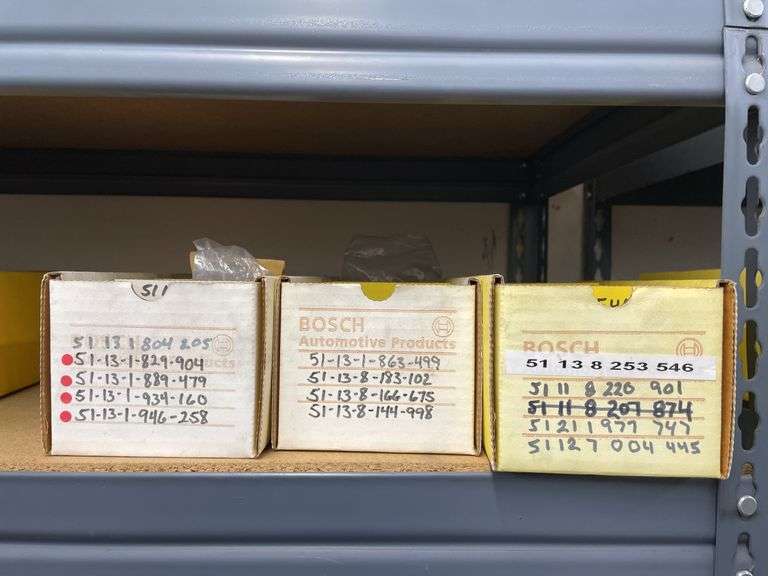 511
51 13 1 804 205
51-13-1-829-904
51-13-1-889-479
51-13-1-934-160
51-13-1-946-258
BOSCH
Automotive Products
51-13-1-863-499
51-13-8-183-102
51-13-8-166-675
51-13-8-144-998
BOSCH
51 13 8 253 546
51 11 8 226 901
51 11 8 207 874
51 21 1 977 747
51 12 7 004 445